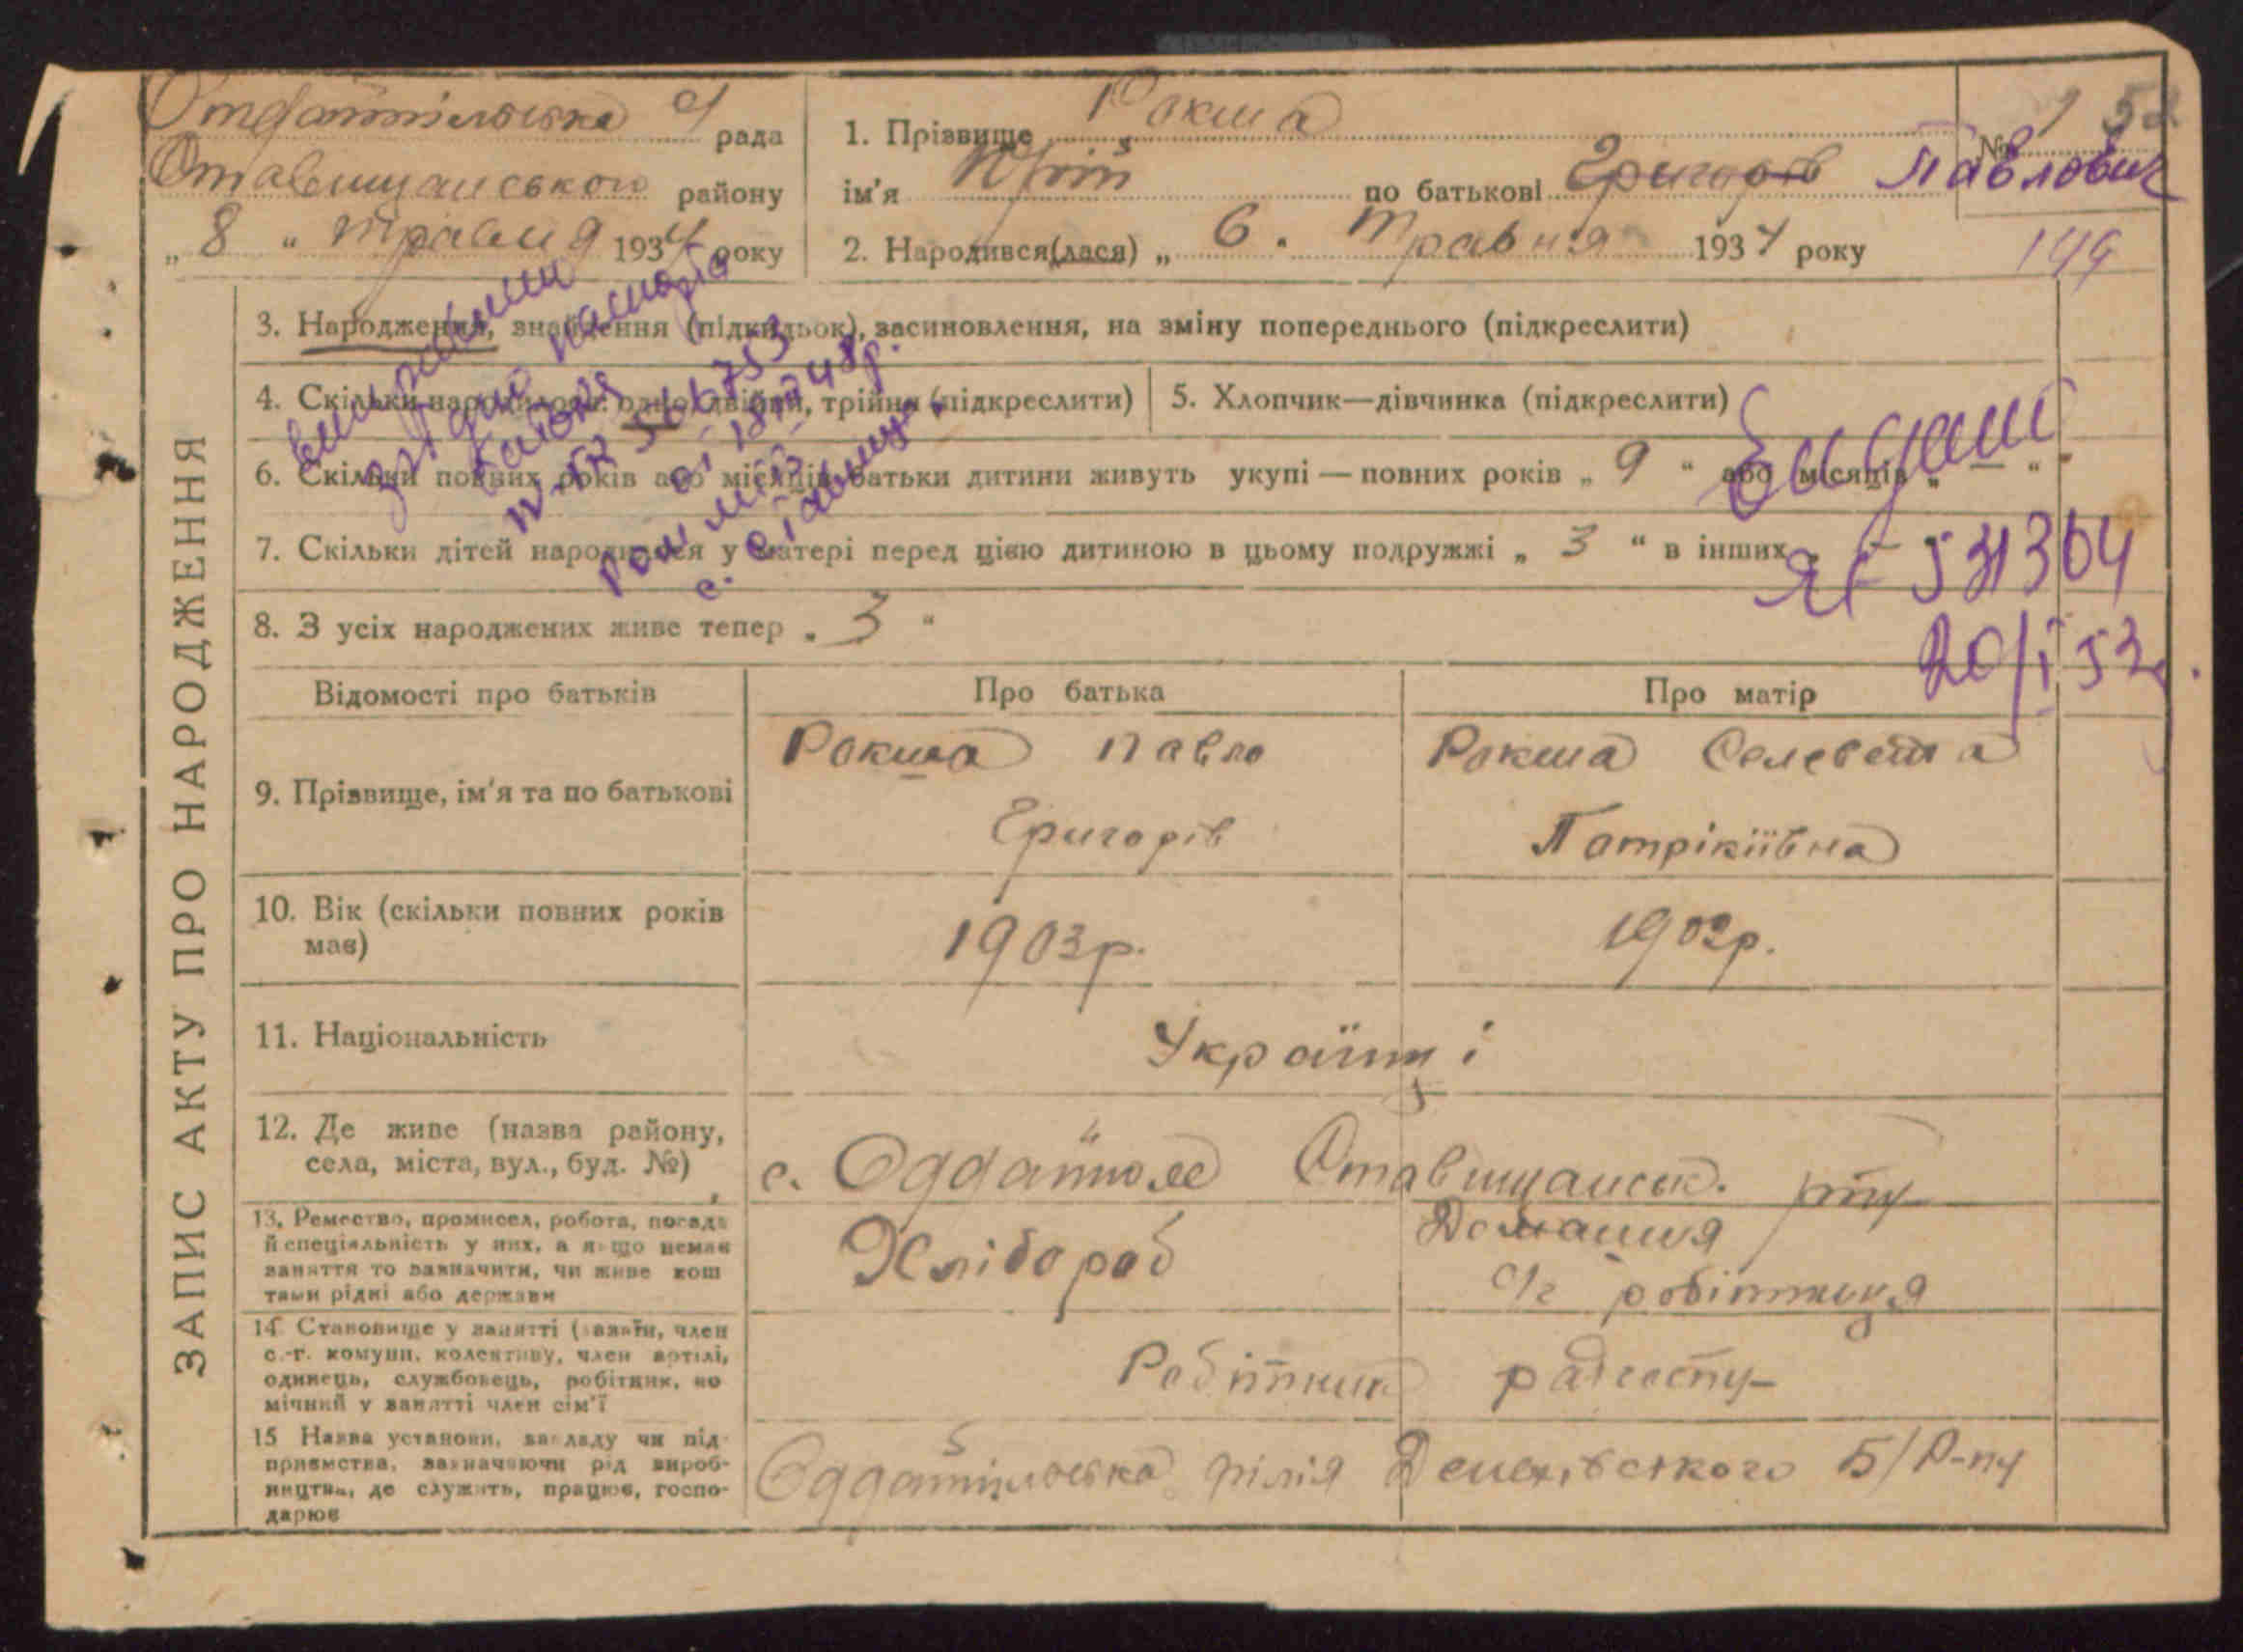 Отдайпільська с/рада
Ставищанського району
„ 8 “ травня 1934 року
№ 152
149
1. Прізвище Рокша
ім'я Юрій по батькові Григорів Павлович
2. Народився(лася) „ 6 “ травня 1934 року
ЗАПИС АКТУ ПРО НАРОДЖЕННЯ
3. Народження, знайдення (підкидьок), засиновлення, на зміну попереднього (підкреслити)
4. Скільки народилося: одно, двійня, трійня (підкреслити)
5. Хлопчик—дівчинка (підкреслити)
6. Скільки повних років або місяців батьки дитини живуть укупі — повних років „ 9 “ або місяців „ — “
7. Скільки дітей народилося у матері перед цією дитиною в цьому подружжі „ 3 “ в інших „ — “
8. З усіх народжених живе тепер „ 3 “
згідно паспорта
батька
506753
РОМ МГБ
с. Ставище
20/I 52
Відомості про батьків
Про батька
Про матір
9. Прізвище, ім'я та по батькові
Рокша Павло
Григорів
Рокша Селевета
Патрікіївна
10. Вік (скільки повних років має)
1903р.
1902р.
11. Національність
Українці
12. Де живе (назва району,
села, міста, вул., буд. №)
с. Оддайполе Ставищанськ. р-ну
13. Ремество, промисел, робота, посада
й спеціяльність у них, а якщо немає
заняття то зазначити, чи живе кош
тами рідні або держави
Хлібороб
Домашня
с/г робітниця
14. Становище у занятті (хазяїн, член
с.-г. комуни, колективу, член артілі,
одинець, службовець, робітник, по
мічний у занятті член сім'ї
Робітники радгоспу
15 Назва установи, закладу чи під-
приємства, зазначаючи рід вироб-
ництва, де служить, працює, госпо-
дарює
Оддайпільська філія